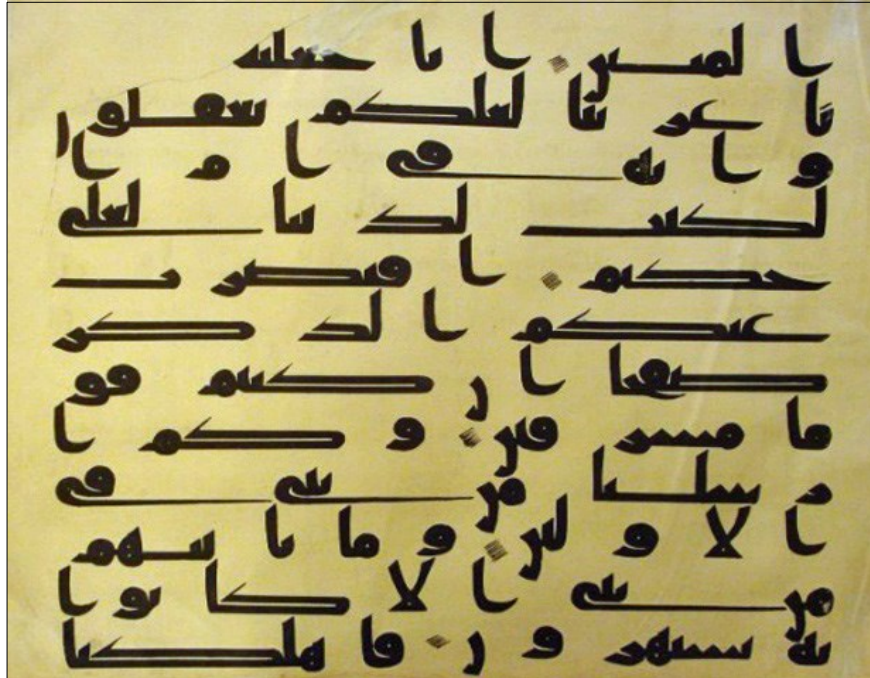 ا لمبين ا نا جعلنه
نا عر بيا لعلكم تعقلو ن
و ا نه في ا م ا
لكتب لد ينا لعلي
حكيم ا فنضر ب
عنكم ا لذ كر
صفحا ا ن كنتم قو
ما مسر فين و كم ا
ر سلنا من نبي في
ا لا و لين و ما يا تيهم
من نبي ا لا كا نو ا
به يستهز و ن فا هلكنا